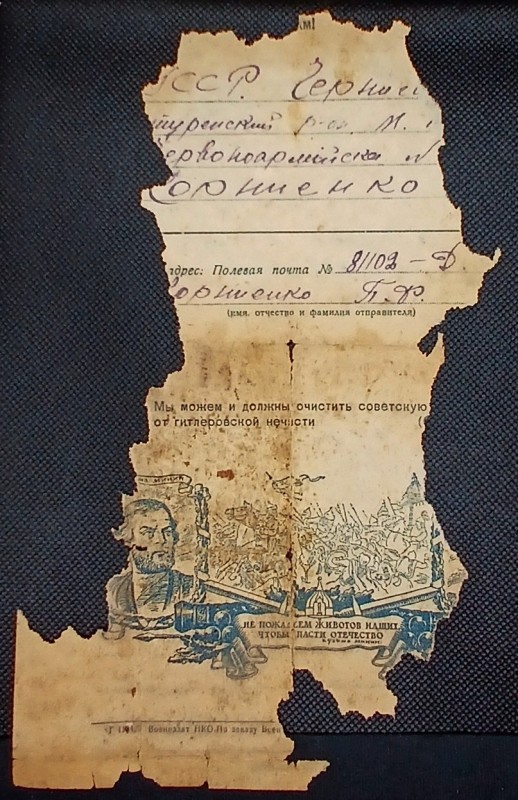 АМ!
УССР. Черниг
турейский р-он. М.
червоноармійска
Корниенко
адрес: Полевая почта № 81102 – Д
Корниенко П. Ф.
(имя, отчество и фамилия отправителя)
Мы можем и должны очистить советскую
от гитлеровской нечисти (
МА МИНИН
НЕ ПОЖАЛЕЕМ ЖИВОТОВ НАШИХ,
ЧТОБЫ СПАСТИ ОТЕЧЕСТВО
КУЗЬМА МИНИН
Воениздат НКО. По заказу Воен